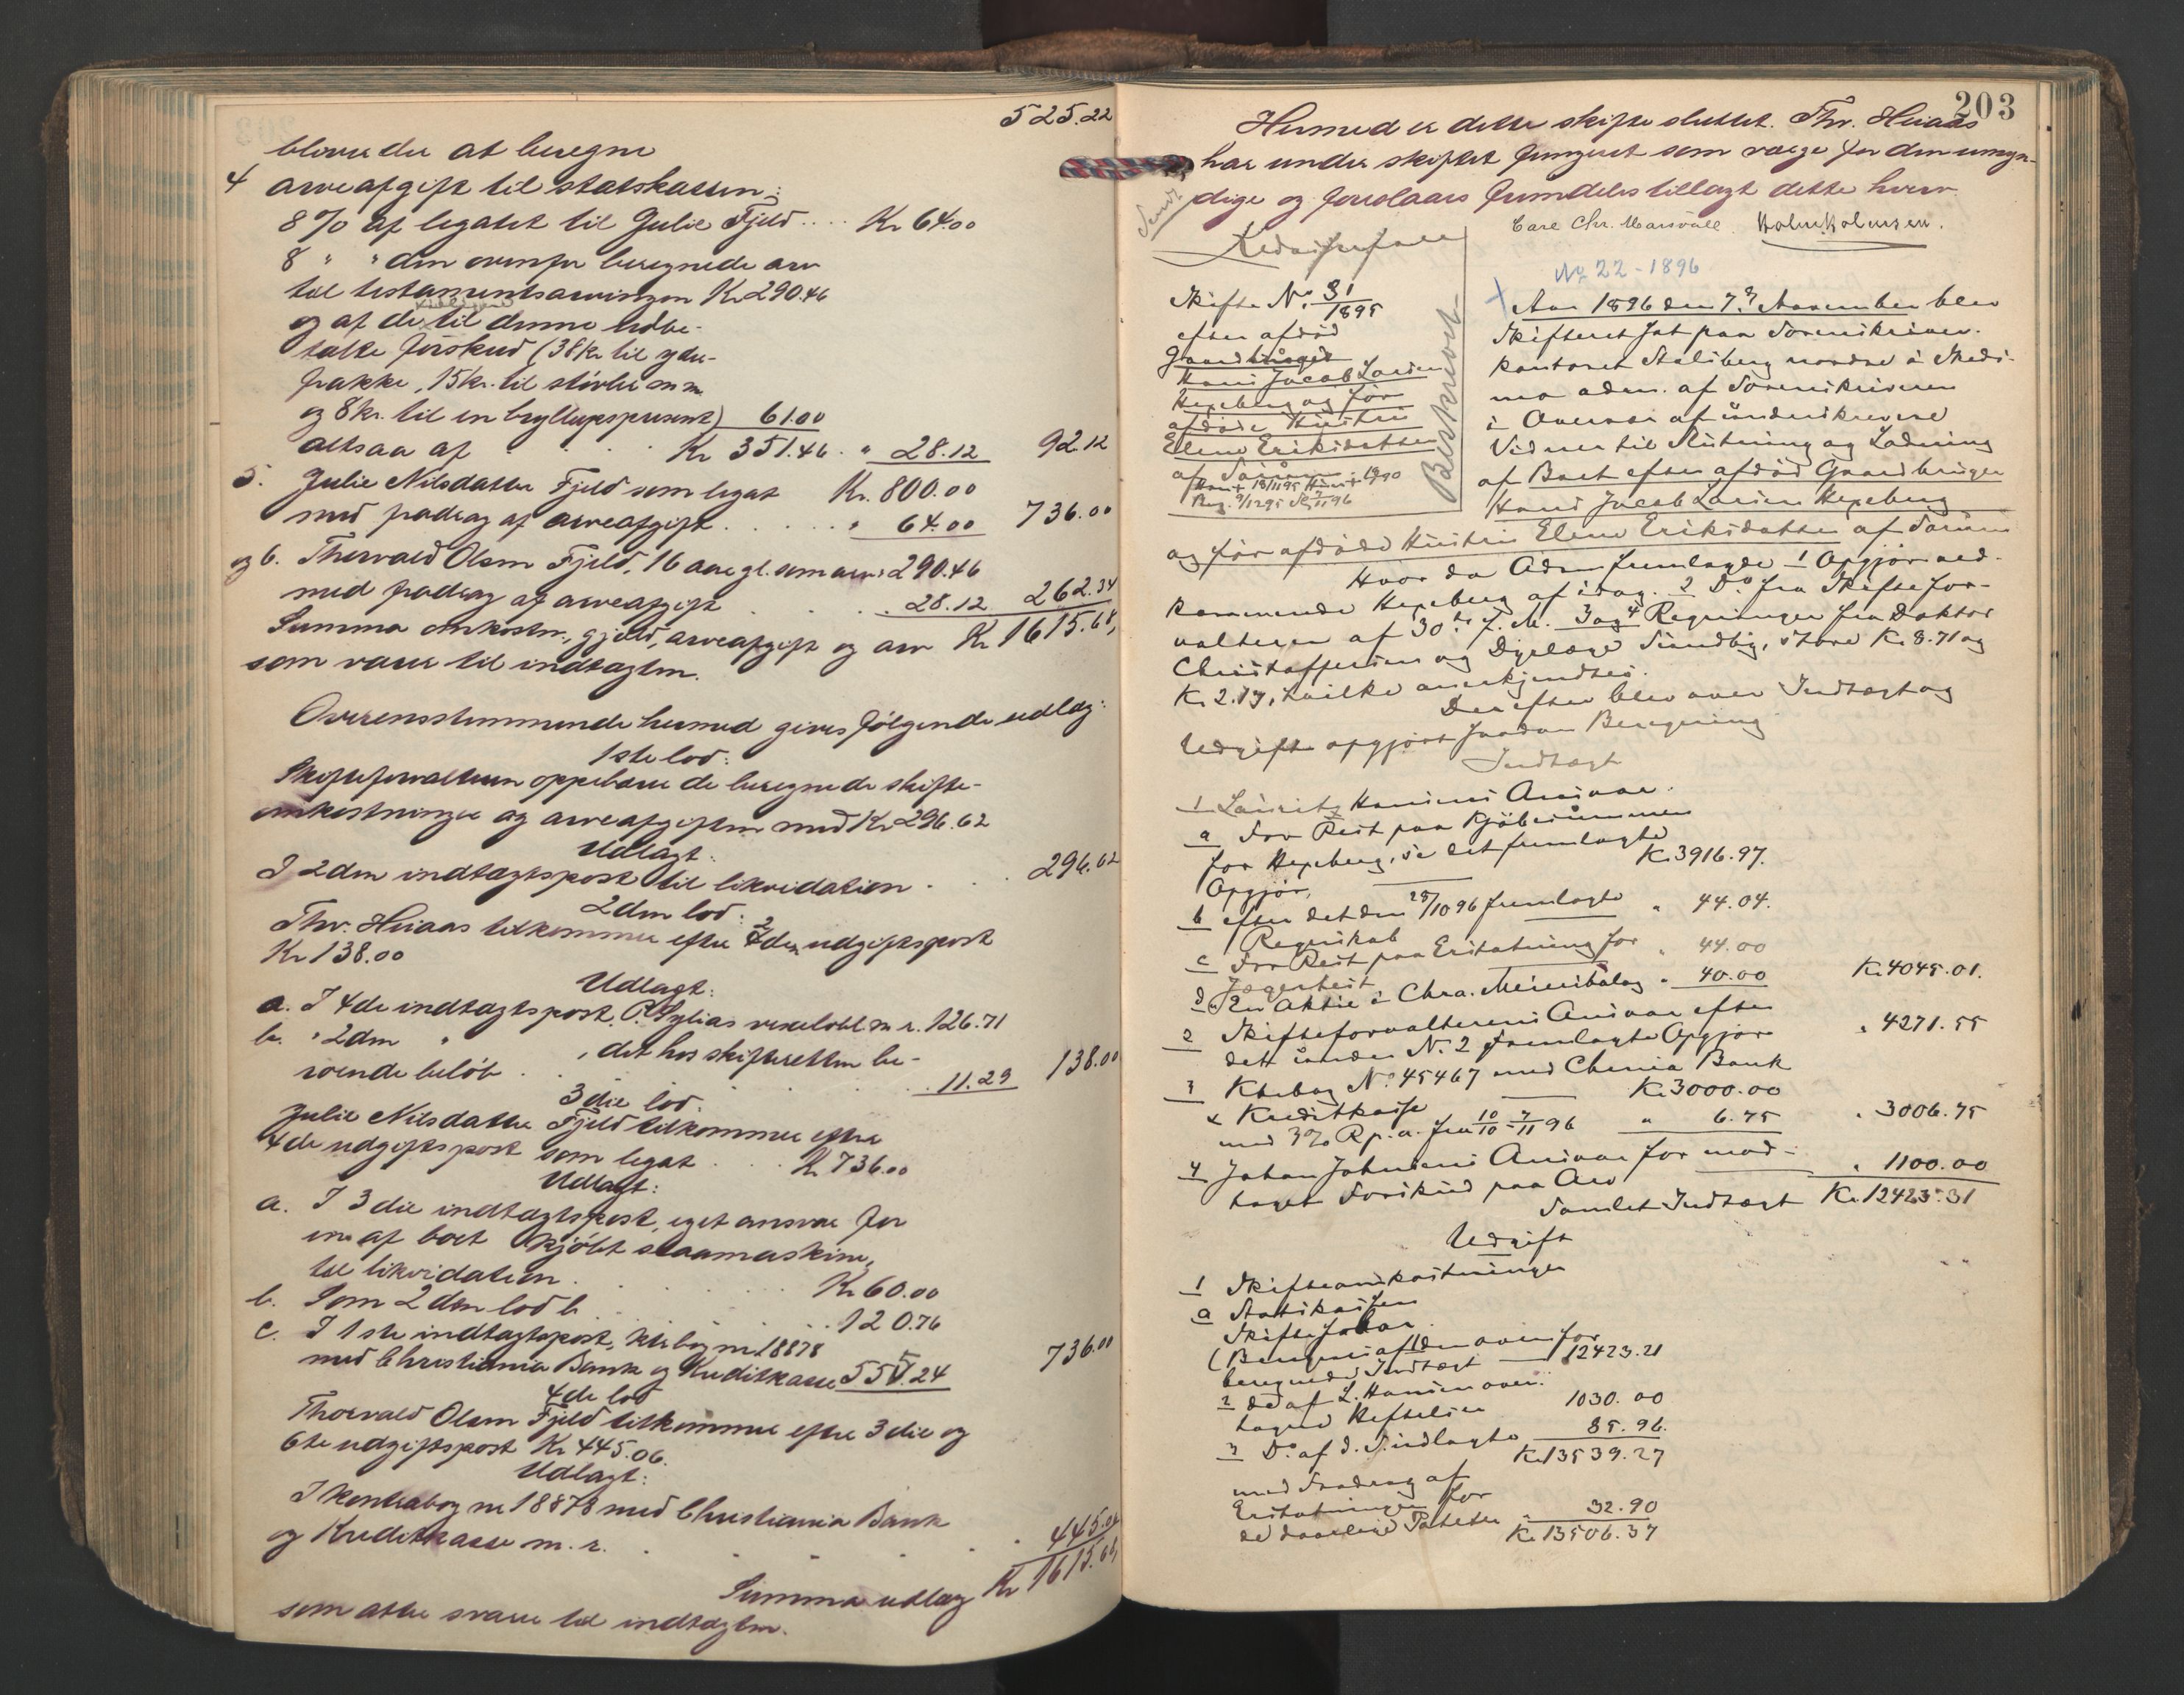 525.22
bliver der at beregne
4 arveafgift til statskassen:
8% af legatet til Julie Fjeld .... Kr 64.00
8 " " den ovenfor beregnede arv
til testamentsarvingen Kr 290.46
og af de til denne udbe-
talte forskud (38 Kr til yder-
frakke, 15 kr. til støvler m m
og 8 kr. til en bryllupspresent) 61.00
altsaa af . . . Kr 351.46 . " 28.12 92.12
5. Julie Nilsdatter Fjeld som legat Kr. 800.00
med fradrag af arveafgift . . . . . " 64.00 736.00
og 6. Thorvald Olsen Fjeld, 16 aar gl. som arv: 290.46
med fradrag af arveafgift . . . . 28.12 262.34
Summa omkostn., gjæld, arveafgift og arv Kr 1615.68,
som svarer til indtægten.
Overensstemmende hermed gives følgende udlæg:
1ste lod:
Skifteforvalteren oppebærer de beregnede skifte-
omkostninger og arveafgiften med Kr 296.62
Udlagt:
I 2den indtægtspost til likvidation . . . 296.62
2den lod:
Thv. Huaas tilkommer efter 2den udgiftspost
Kr 138.00
Udlagt:
a. I 4de indtægtspost, m. r. 126.71
b. " 2den " , det hos skifteretten be-
roende beløb . . . . 11.29 138.00
3die lod.
Julie Nilsdatter Fjeld tilkommer efter
4de udgiftspost som legat . . . Kr 736.00
Udlagt:
a. I 3die indtægtspost, eget ansvar for
en af boet kjøbt slaamaskine,
til likvidation . . . . . Kr 60.00
b. Som 2den lod b . . . . . 120.76
c. I 1ste indtægtspost, ktrabog nr. 18878
med Christiania Bank og Kreditkasse 555.24 736.00
4de lod
Thorvald Olsen Fjeld tilkommer efter 3die og
6te udgiftspost Kr 445.06.
Udlagt:
I kontrabog nr 18878 med Christiania Bank
og Kreditkasse m. r. . . . . 445.06
Summa udlæg Kr 1615.68,
som atter svarer til indtægten.
203
Hermed er dette skifte sluttet. Thv. Huaas
har under skiftet fungeret som værge for den umyn-
dige og foreslaaes fremdeles tillagt dette hverv.
Carl Chr. Holm Holmsen.
No 22-1896
Skifte No. 31/1895
efter afdød
Gaardbruger
Hans Jacob Larsen
Hexeberg og før
afdøde Hustru
Elene Eriksdatter
af Sørum
Beskrevet
Aar 1896 den 7de November blev
Skifteret sat paa Sorenskriver-
kontoret Asleberg nordre i Skeds-
mo adm. af Sorenskriveren
i Overvær af underskrevne
Vidner til Slutning og Lodning
af Boet efter afdød Gaardbruger
Hans Jacob Larsen Hexeberg
og før afdøde Hustru Elene Eriksdatter af Sørum
Hvor da Adm. fremlagde 1 Opgjør ved-
kommende Hexeberg af idag. 2 Do. fra Skiftefor-
valteren af 30te f. M. 3 og 4 Regninger fra Doktor
Christoffersen og Dyrlæge Sundby, store Kr 8.71 og
Kr 2.17, hvilke anerkjendtes.
Derefter blev over Indtægt og
Udgift opgjort saadan Beregning
Indtægt
1 Lauritz Hansens Ansvar.
a For Rest paa Kjøbesummen
for Hexeberg, se det fremlagte
Opgjør, Kr 3916.97.
b efter det den 28/10 96 fremlagte
Regnskab " 44.04.
c For Rest paa Erstatning for
Jægerhest " 44.00
d En Aktie i Chra. Meieribolag " 40.00 Kr 4045.01.
2 Skifteforvalterens Ansvar efter
det under No. 2 fremlagte Opgjør " 4271.55
3 Ktrabog No. 45467 med Chrnia Bank
& Kreditkasse Kr 3000.00
med 3% R p. a. fra 10/10 - 7/11 96 " 6.75 " 3006.75
4 Johan Johnsens Ansvar for mod-
taget Forskud paa Arv " 1100.00
Samlet Indtægt Kr 12423.31
Udgift
1 Skifteomkostninger
a Statskassen
Skiftesalær
(Beregnes af 1 den ovenfor
beregnede Indtægt 12423.21
2 do af L. Hansen over-
tagne Heftelser 1030.00
3 Do. af d. S. indlagte 85.96.
Kr 13539.27
med Fradrag af
Erstatningen for
de daarlige Poteter " 32.90
Kr 13506.37